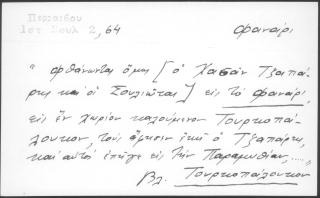 Περραιβου
Ιστ Σουλ 2, 64
Φανάρι
"φθάνωντας ὅμως [ὁ Χασὰν Τζαπά-
ρης καὶ οἱ Σουλιῶται] εἰς τὸ Φανάρι,
εἰς ἓν χωρίον καλούμενον Τουρκοπά-
λουκον, τοὺς ἄφησεν ἐκεῖ ὁ Τζαπάρης,
καὶ αὐτὸς ἐπῆγε εἰς τὴν Παραμυθίαν, ....."
Βλ. Τουρκοπάλουκον